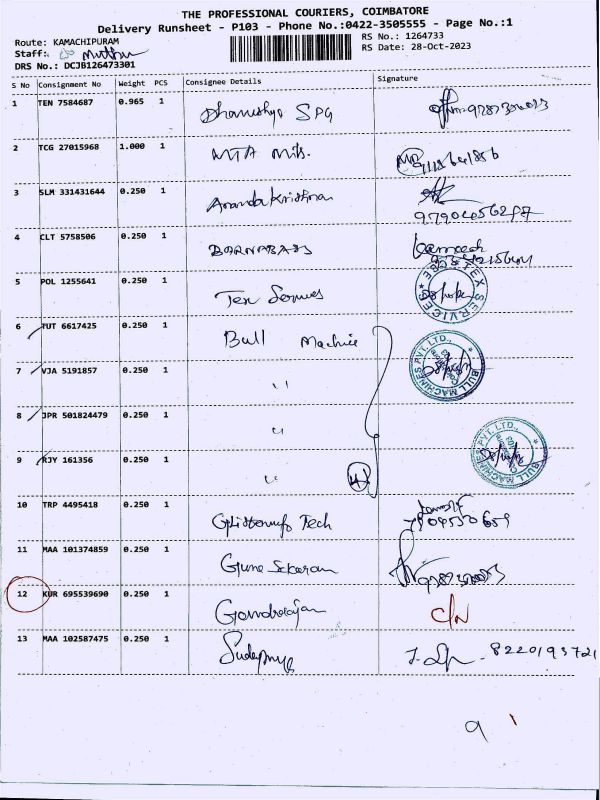 THE PROFESSIONAL COURIERS, COIMBATORE
Delivery Runsheet - P103 - Phone No.:0422-3505555 - Page No.:1
Route: KAMACHIPURAM
RS No.: 1264733
Staff: Muthu
RS Date: 28-Oct-2023
DRS No.: DCJB126473301
S No Consignment No Weight PCS Consignee Details Signature
1 TEN 7584687 0.965 1 SPG
2 TCG 27015968 1.000 1 MTA Mills.
3 SLM 331431644 0.250 1 Ananda Krishna
4 CLT 5758506 0.250 1 BARNABASS
5 POL 1255641 0.250 1 Tex Services
6 TUT 6617425 0.250 1 Bull Machine
7 VJA 5191857 0.250 1 "
8 JPR 501824479 0.250 1 "
9 RJY 161356 0.250 1 " 4
BULL MACHINES PVT.LTD.,
BULL MACHINES PVT.LTD.,
10 TRP 4495418 0.250 1 Tech
11 MAA 101374859 0.250 1 Guna Sekaran
12 KUR 695539690 0.250 1 C/N
13 MAA 102587475 0.250 1 8220193721
9